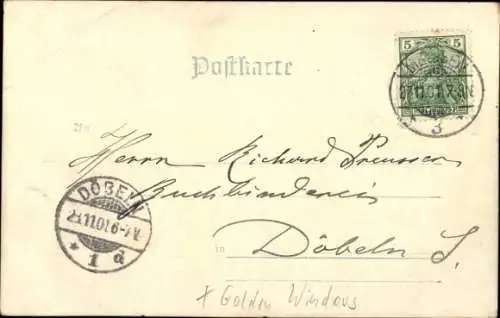 5 5
Postkarte
An
Herrn Richard Preusser
Buchbinderei
DÖBELN
* 1 d
in Döbeln S.
* Golden Windows